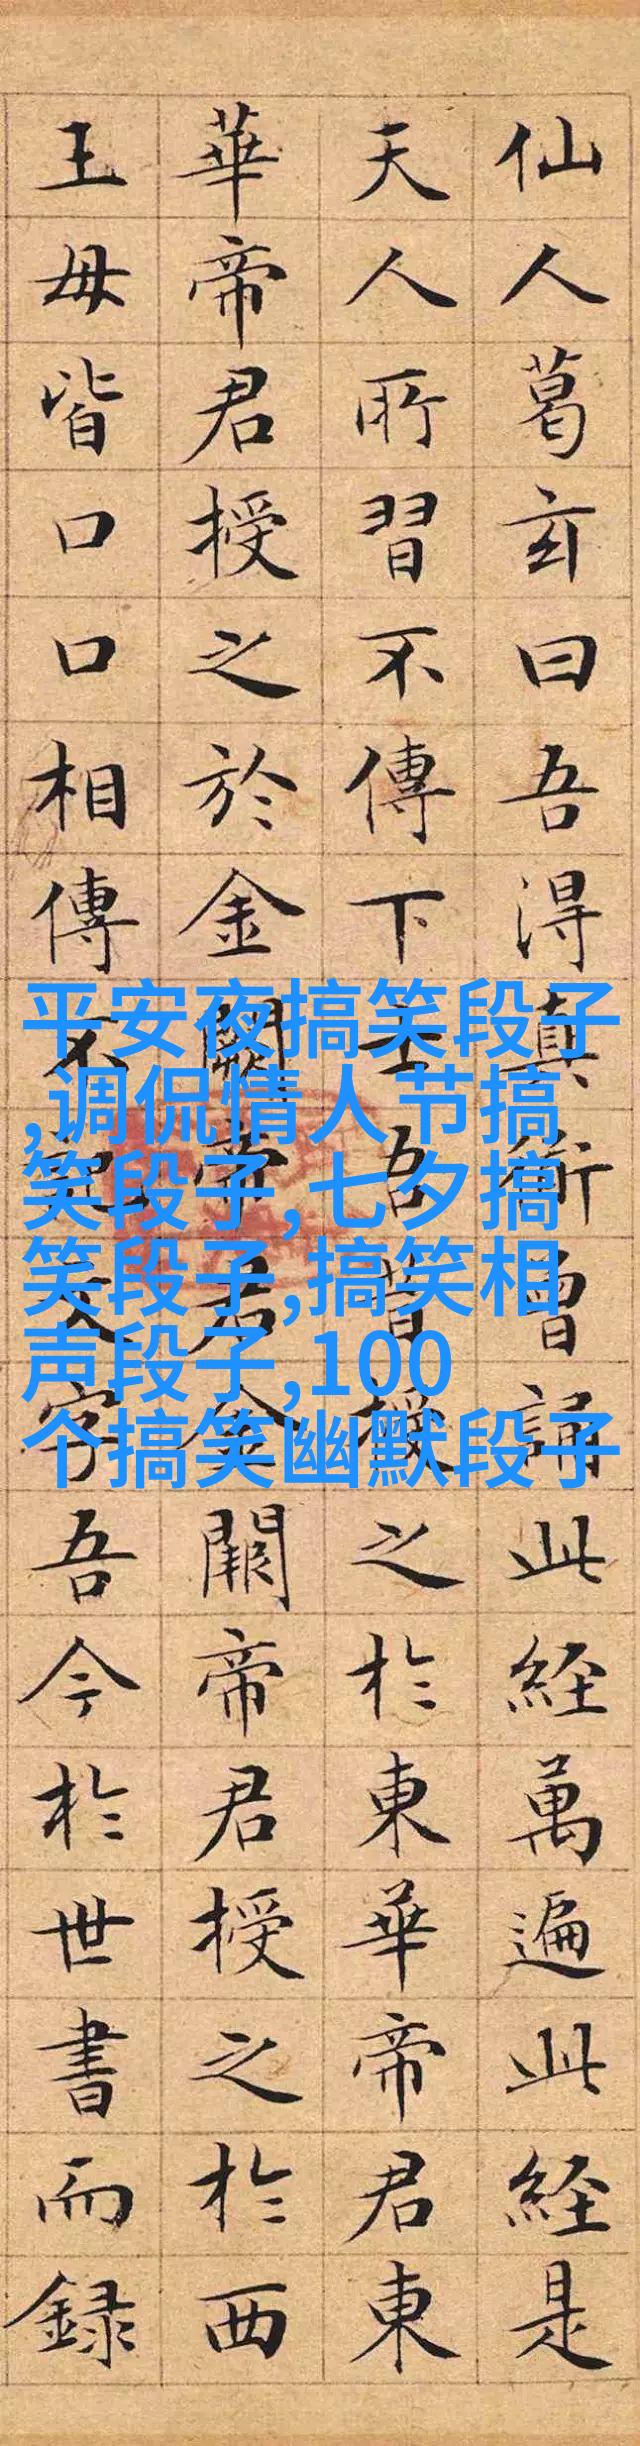 仙人葛玄曰吾得真術曾誦此経萬遍此経是
天人所習不傳下士吾昔授之於東華帝君東
華帝君授之於金闕帝君金闕帝君授之於西
王母皆口口相傳不記文字吾今於世書而録
平安夜搞笑段子
,调侃情人节搞
笑段子,七夕搞
笑段子,搞笑相
声段子,100
个搞笑幽默段子